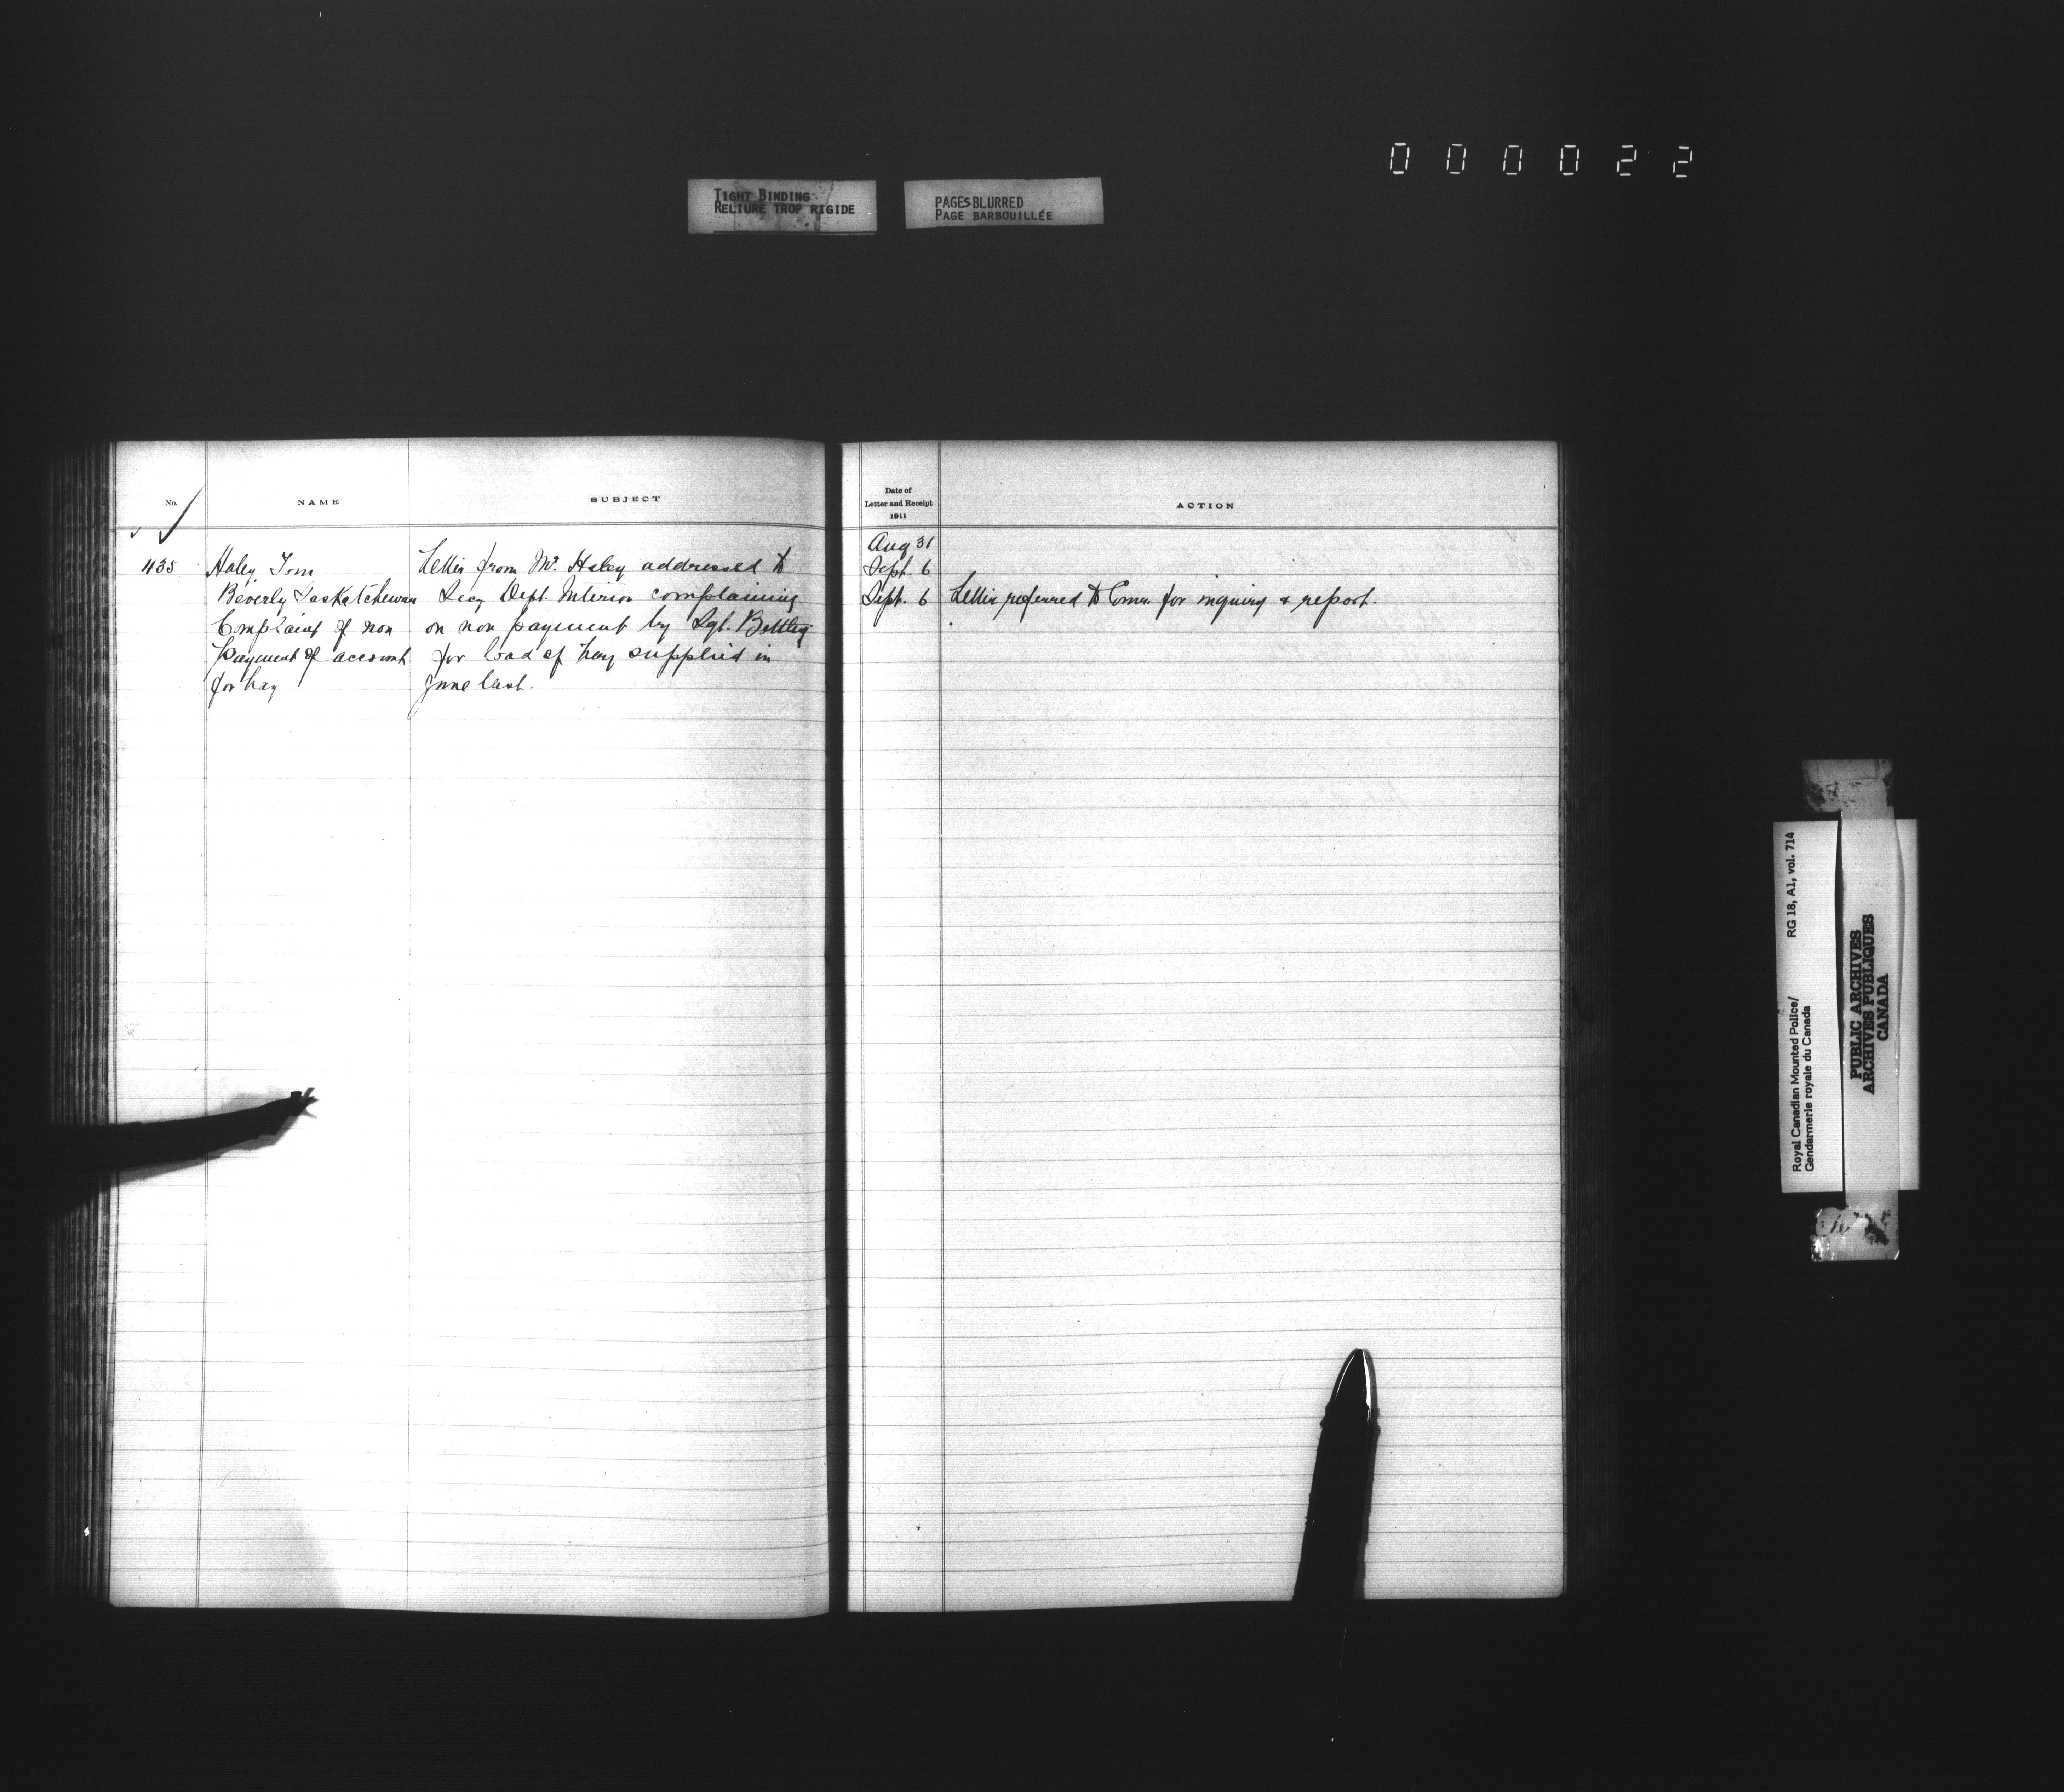 000022
TIGHT BINDING
RELIURE TROP RIGIDE
PAGES BLURRED
PAGE BARBOUILLÉE
No.
NAME
SUBJECT
Date of
Letter and Receipt
1911
ACTION
435
Haley, Tom
Beverly Saskatchewan
Complaint of non
Payment of account
for hay
Letter from Mr. Haley addressed to
Secy Dept. Interior complaining
on non payment by Sgt.
for load of hay supplied in
June last.
Aug 31
Sept. 6
Sept. 6
Letter referred to Comr. for inquiry & report.
Royal Canadian Mounted Police/
Gendarmerie royale du Canada
RG 18, A1, vol. 714
PUBLIC ARCHIVES
ARCHIVES PUBLIQUES
CANADA